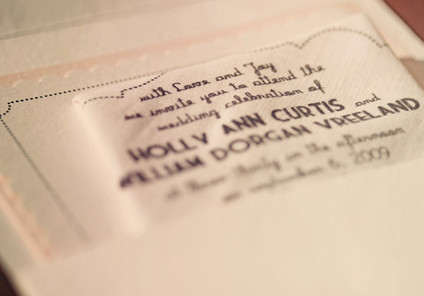 with Love and Joy
we invite you to attend the
wedding celebration of
HOLLY ANN CURTIS and
WILLIAM DORGAN VREELAND
at three thirty on the afternoon
on september 6, 2009